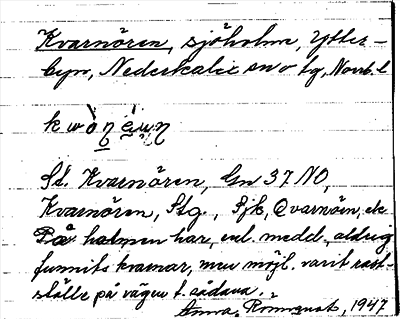 Kvarnören, sjöholme, Ytter-
byn, Nederkalix sn o tg, Norrb. l
St. Kvarnören, Gn 37 NO,
Kvarnören, Stg., Sjk, Qvarnöen, ek
På holmen har, enl. medd., aldrig
funnits kvarnar, men möjl. varit rast-
ställe på vägen t. sådana.
Anna 1947